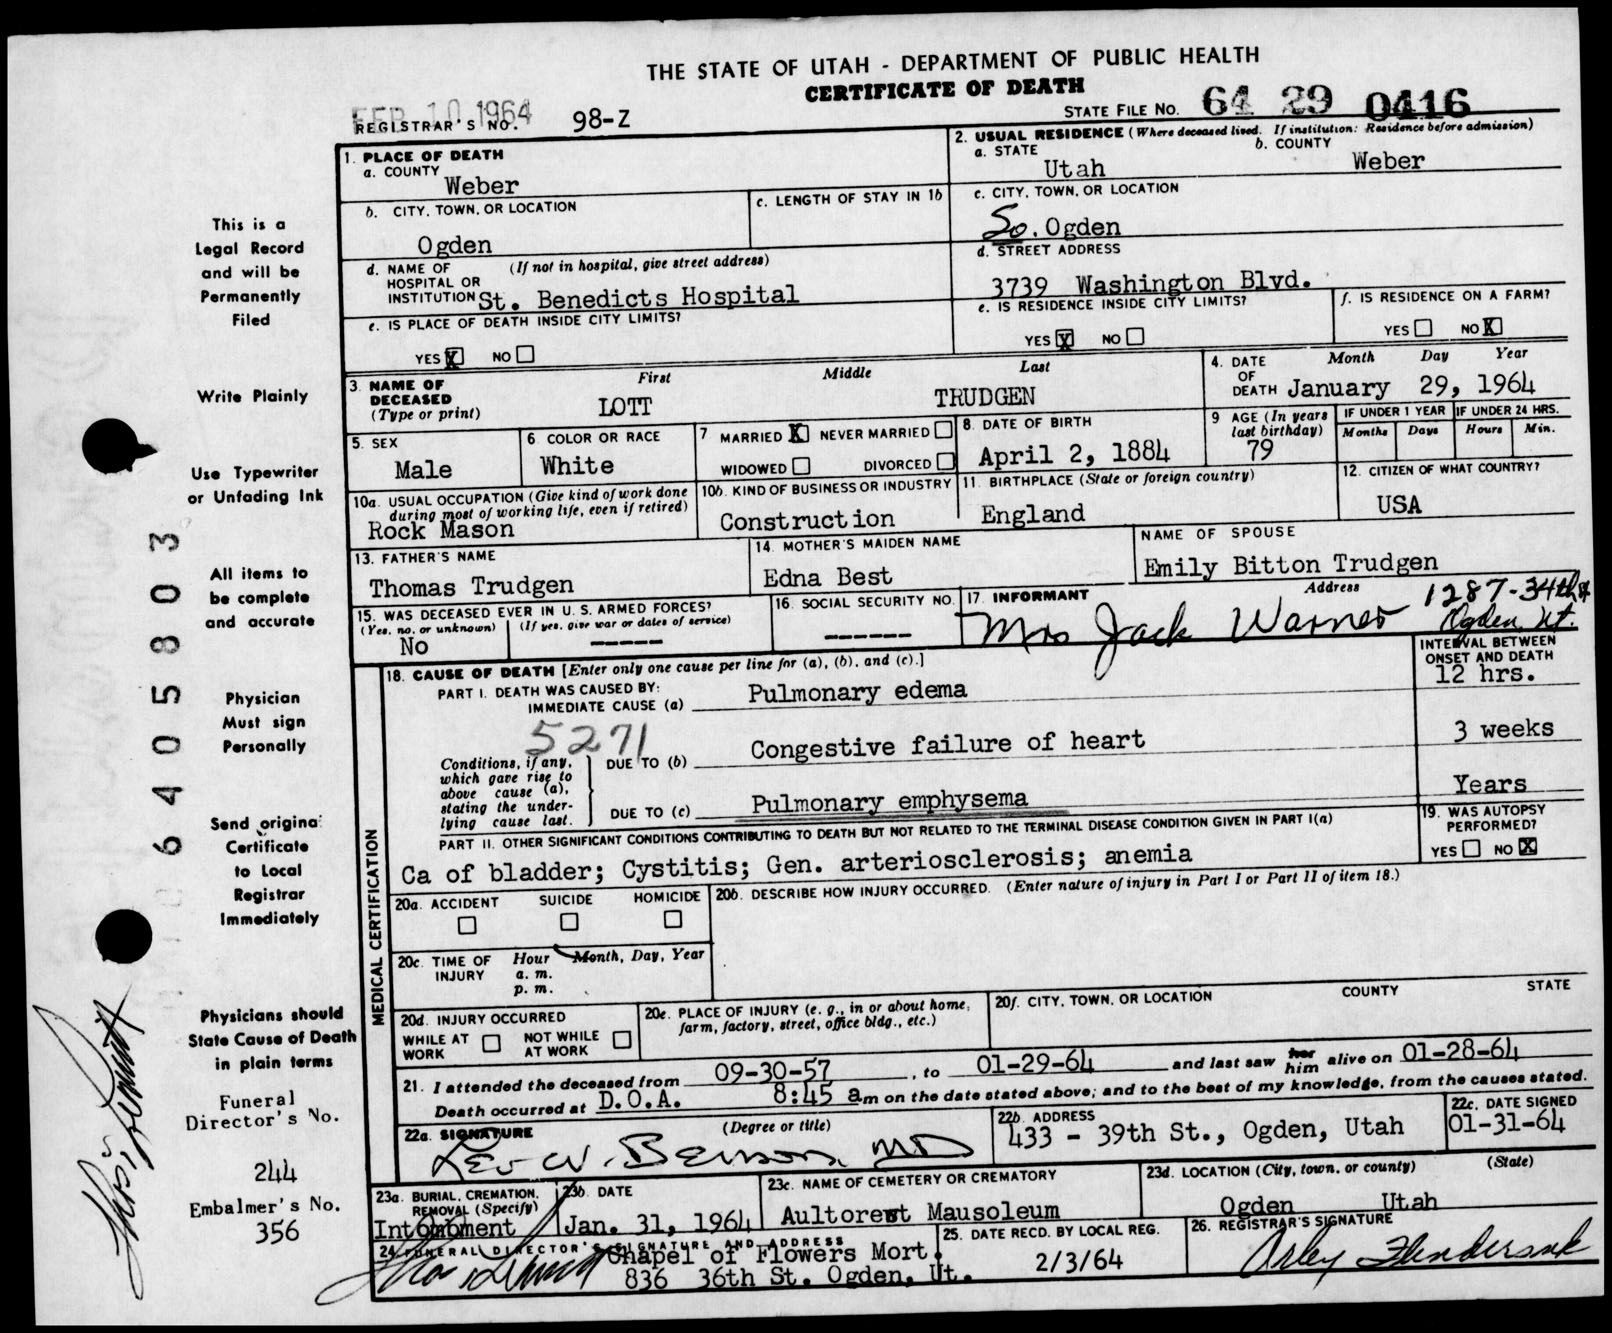 THE STATE OF UTAH - DEPARTMENT OF PUBLIC HEALTH
CERTIFICATE OF DEATH
FEB 10 1964
REGISTRAR'S NO. 98-Z
STATE FILE NO. 64 29 0416
1. PLACE OF DEATH
a. COUNTY
Weber
2. USUAL RESIDENCE (Where deceased lived. If institution: Residence before admission)
a. STATE
Utah
b. COUNTY
Weber
b. CITY, TOWN, OR LOCATION
Ogden
c. LENGTH OF STAY IN 1b
c. CITY, TOWN, OR LOCATION
So. Ogden
d. NAME OF HOSPITAL OR INSTITUTION (If not in hospital, give street address)
St. Benedicts Hospital
d. STREET ADDRESS
3739 Washington Blvd.
e. IS PLACE OF DEATH INSIDE CITY LIMITS?
YES X NO
e. IS RESIDENCE INSIDE CITY LIMITS?
YES X NO
f. IS RESIDENCE ON A FARM?
YES NO X
3. NAME OF DECEASED (Type or print)
First Middle Last
LOTT TRUDGEN
4. DATE OF DEATH
Month Day Year
January 29, 1964
5. SEX
Male
6. COLOR OR RACE
White
7 MARRIED X NEVER MARRIED
WIDOWED DIVORCED
8. DATE OF BIRTH
April 2, 1884
9 AGE (In years last birthday)
79
IF UNDER 1 YEAR
Months Days
IF UNDER 24 HRS.
Hours Min.
10a. USUAL OCCUPATION (Give kind of work done during most of working life, even if retired)
Rock Mason
10b. KIND OF BUSINESS OR INDUSTRY
Construction
11. BIRTHPLACE (State or foreign country)
England
12. CITIZEN OF WHAT COUNTRY?
USA
13. FATHER'S NAME
Thomas Trudgen
14. MOTHER'S MAIDEN NAME
Edna Best
NAME OF SPOUSE
Emily Bitton Trudgen
15. WAS DECEASED EVER IN U. S. ARMED FORCES?
(Yes, no, or unknown) (If yes, give war or dates of service)
No -----
16. SOCIAL SECURITY NO.
------
17. INFORMANT Address
Mrs Jack Warner 1287-34th St
Ogden Ut.
MEDICAL CERTIFICATION
18. CAUSE OF DEATH [Enter only one cause per line for (a), (b), and (c).]
INTERVAL BETWEEN ONSET AND DEATH
PART I. DEATH WAS CAUSED BY:
IMMEDIATE CAUSE (a) Pulmonary edema 12 hrs.
5271
Conditions, if any, which gave rise to above cause (a), stating the underlying cause last.
DUE TO (b) Congestive failure of heart 3 weeks
DUE TO (c) Pulmonary emphysema Years
PART II. OTHER SIGNIFICANT CONDITIONS CONTRIBUTING TO DEATH BUT NOT RELATED TO THE TERMINAL DISEASE CONDITION GIVEN IN PART I(a)
Ca of bladder; Cystitis; Gen. arteriosclerosis; anemia
19. WAS AUTOPSY PERFORMED?
YES NO X
20a. ACCIDENT SUICIDE HOMICIDE
20b. DESCRIBE HOW INJURY OCCURRED. (Enter nature of injury in Part I or Part II of item 18.)
20c. TIME OF INJURY
Hour Month, Day, Year
a. m.
p. m.
20d. INJURY OCCURRED
WHILE AT WORK NOT WHILE AT WORK
20e. PLACE OF INJURY (e. g., in or about home, farm, factory, street, office bldg., etc.)
20f. CITY, TOWN, OR LOCATION COUNTY STATE
21. I attended the deceased from 09-30-57, to 01-29-64 and last saw her him alive on 01-28-64
Death occurred at D.O.A. 8:45 am on the date stated above; and to the best of my knowledge, from the causes stated.
22a. SIGNATURE (Degree or title)
Lev W. Benson MD
22b. ADDRESS
433 - 39th St., Ogden, Utah
22c. DATE SIGNED
01-31-64
23a. BURIAL, CREMATION, REMOVAL (Specify)
Intombment
23b. DATE
Jan. 31, 1964
23c. NAME OF CEMETERY OR CREMATORY
Aultorest Mausoleum
23d. LOCATION (City, town, or county) (State)
Ogden Utah
24 FUNERAL DIRECTOR'S SIGNATURE AND ADDRESS
Chapel of Flowers Mort.
836 36th St. Ogden, Ut.
25. DATE RECD. BY LOCAL REG.
2/3/64
26. REGISTRAR'S SIGNATURE
This is a
Legal Record
and will be
Permanently
Filed
Write Plainly
Use Typewriter
or Unfading Ink
All items to
be complete
and accurate
Physician
Must sign
Personally
Send original
Certificate
to Local
Registrar
Immediately
Physicians should
State Cause of Death
in plain terms
Funeral
Director's No.
244
Embalmer's No.
356
64058803